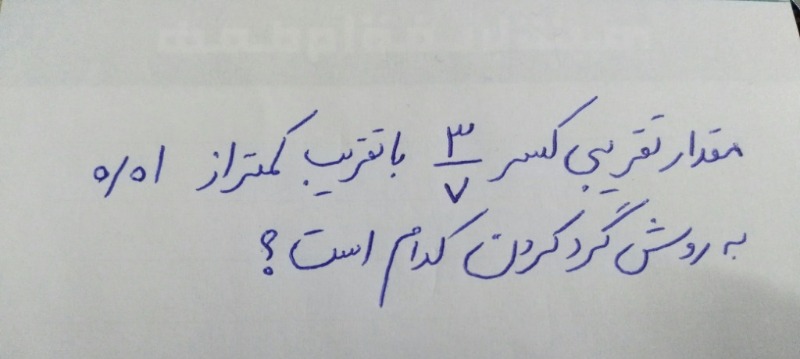 مقدار تقریبی کسر ۳/۷ با تقریب کمتر از ۰/۰۱
به روش گرد کردن کدام است؟